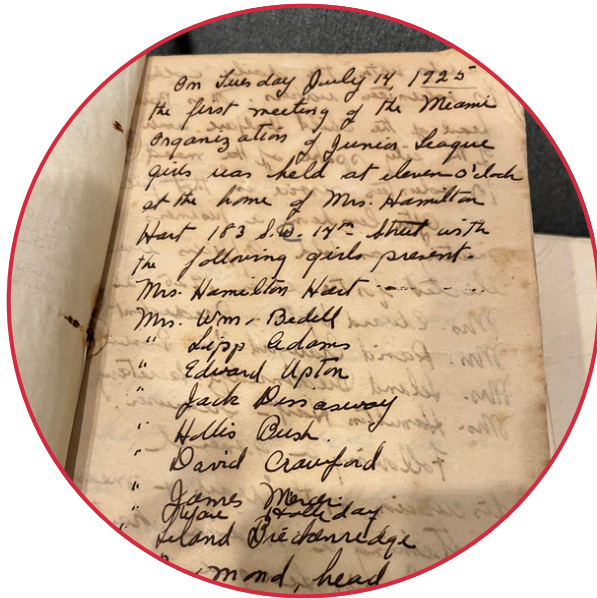 On Tuesday July 14, 1925
the first meeting of the Miami
Organization of Junior League
girls was held at eleven o'clock
at the home of Mrs. Hamilton
Hart 183 S.W. 14th Street with
the following girls present.
Mrs. Hamilton Hart
Mrs. Wm. Bedell
" Lipp Adams
" Edward Upton
" Jack Dissosway
" Hollis Bush.
" David Crawford
" James
" Holliday
" Leland Breckenridge
mond, head